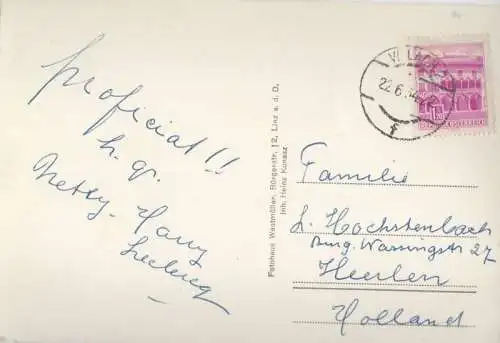 proficiat!!
h. g.
Netty - Harry
Leclercq
Fotohaus Westmüller, Bürgerstr. 12, Linz a. d. D.
Inh. Heinz Kunasz
VILLACH
22.6.
ÖSTERREICH
Familie
L. Hochstenbach
Burg. Wassingstr 27
Heerlen
Holland